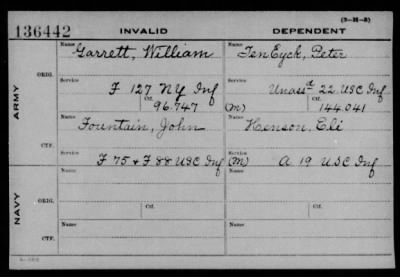 (3-H-2)
136442 INVALID DEPENDENT
Name Name
Garrett, William TenEyck, Peter
ORIG. Service Service
F 127 NY Inf Unass'd 22 USC Inf
Ctf. Ctf.
96.747 (M) 144.041
ARMY
Name Name
Fountain, John Henson, Eli
CTF. Service Service
F 75 & F 88 USC Inf (M) A 19 USC Inf
Name Name
ORIG. Service Ctf. Service Ctf.
NAVY
Name Name
CTF. Service Service